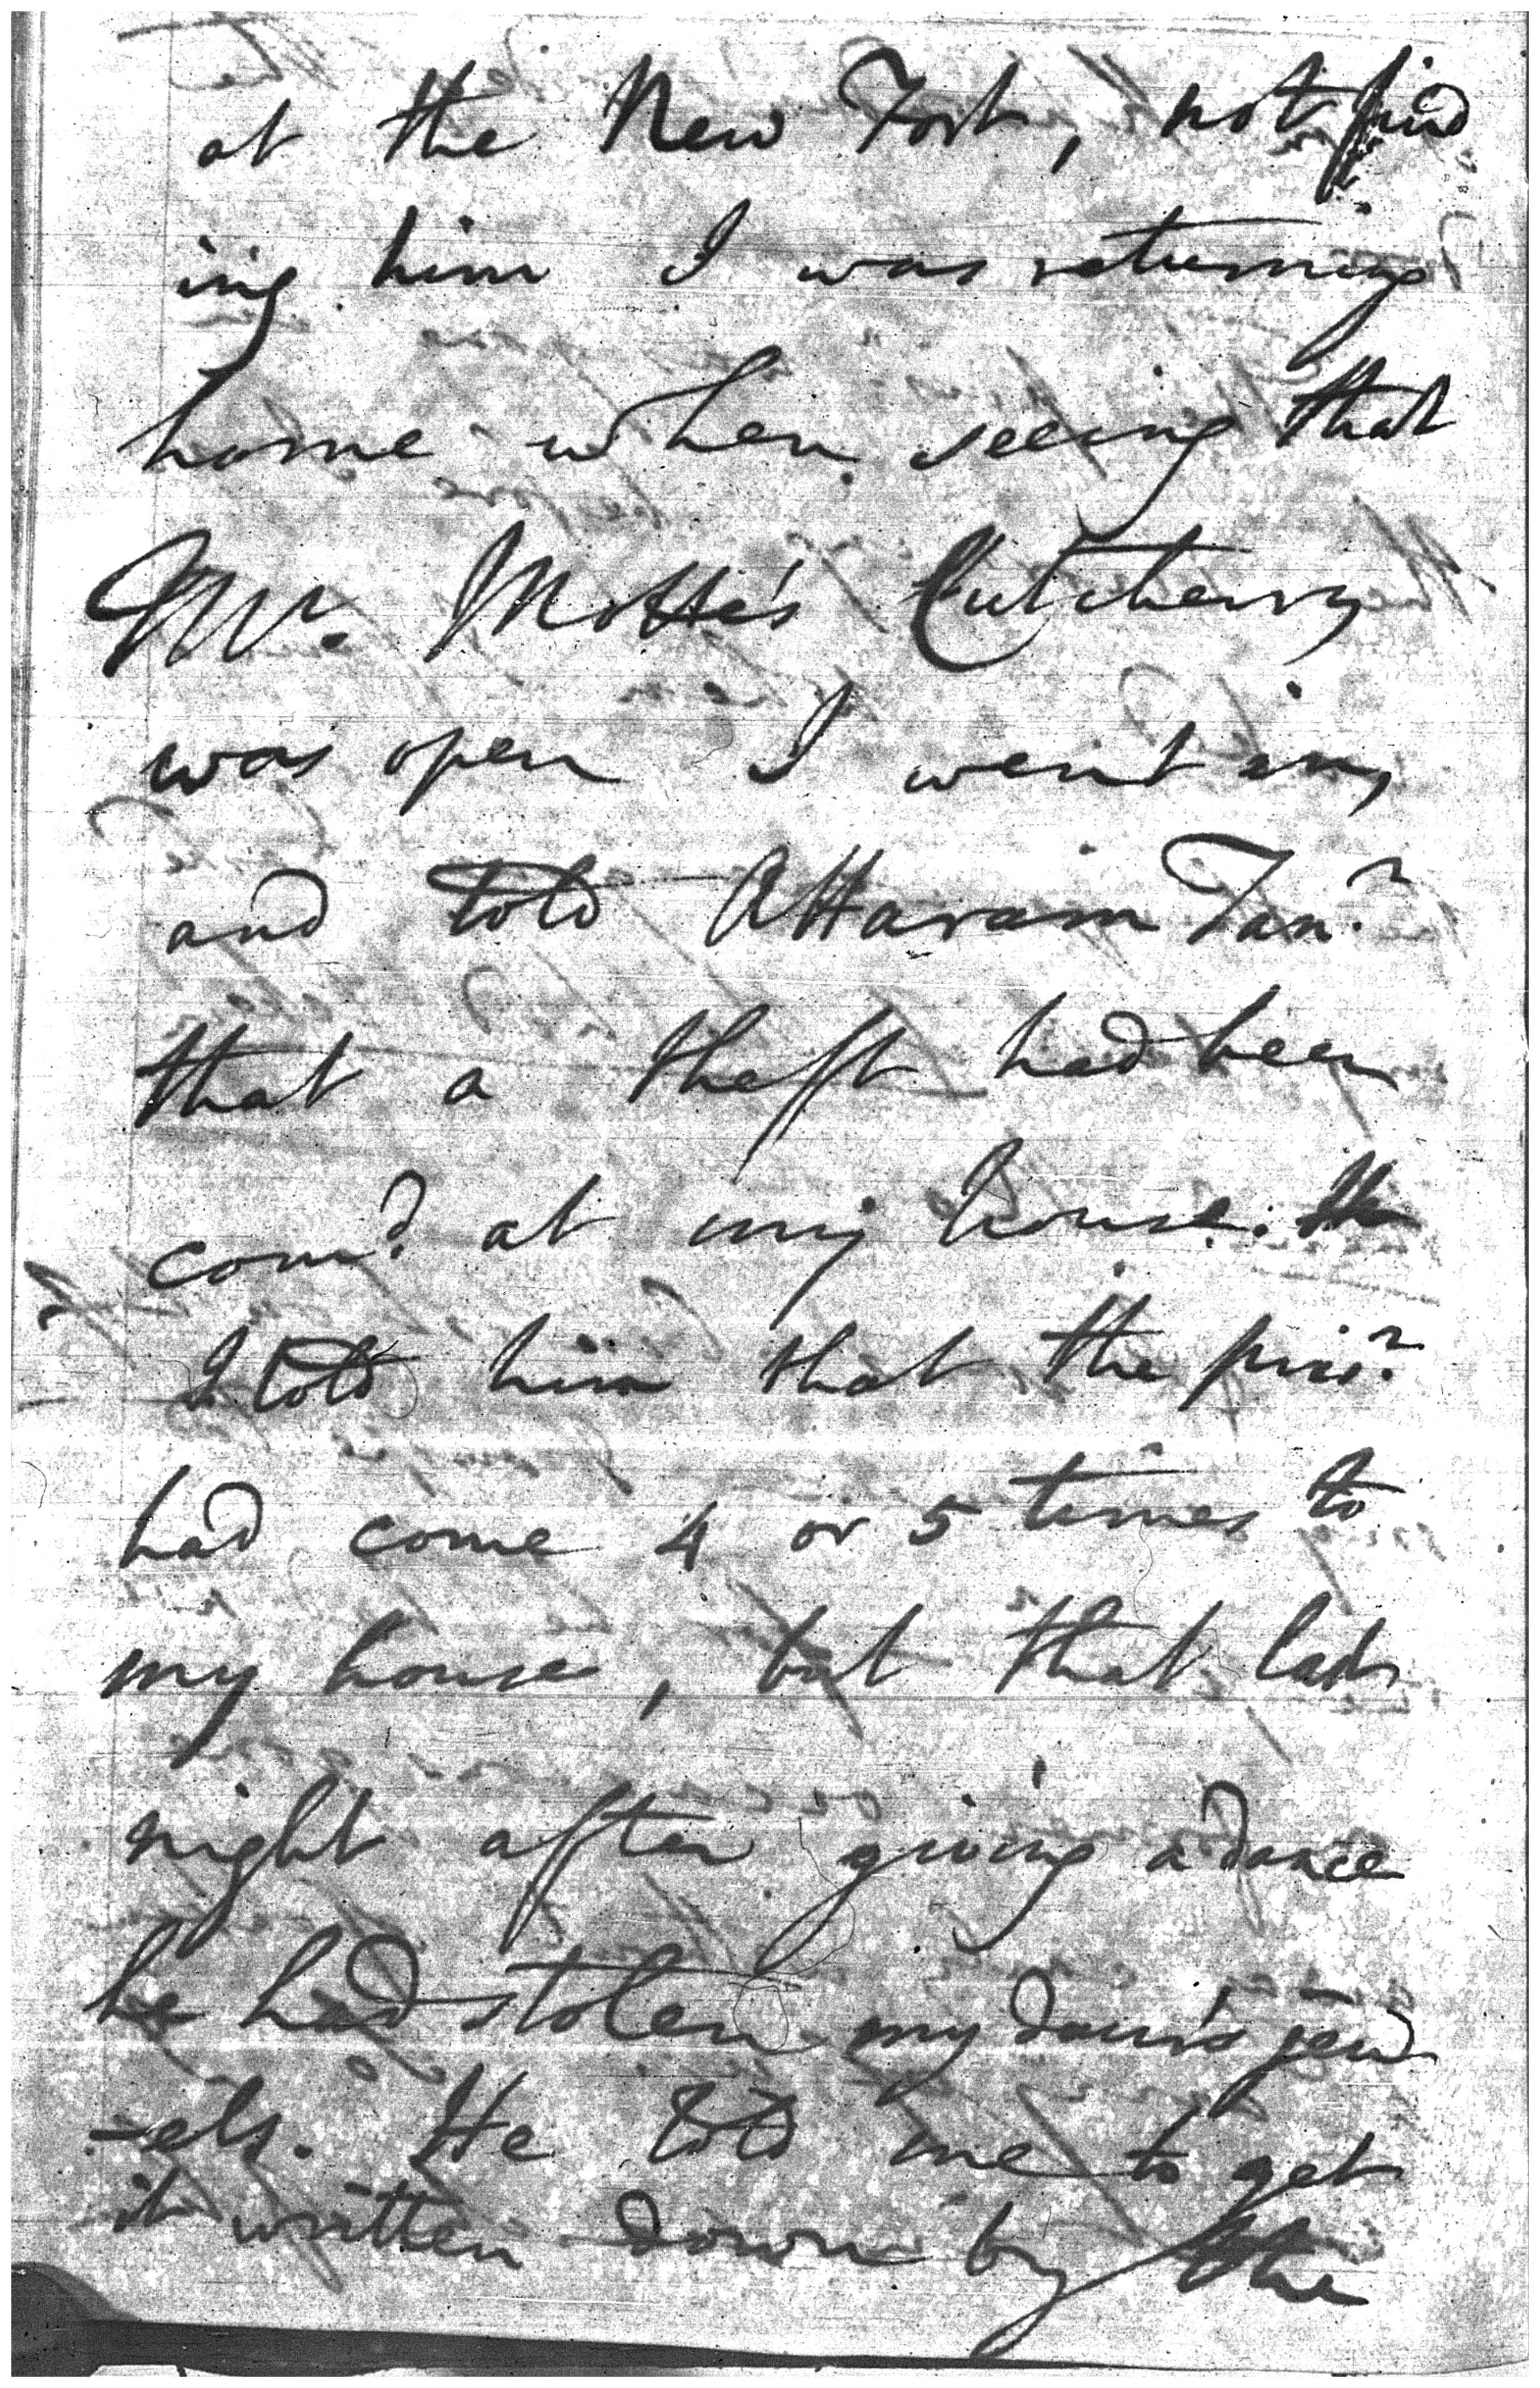 at the New Fort, not find
ing him I was returning
home when seeing that
Mr. Motte's Cutcherry
was open I went in,
and told Attaram Jan.r
that a theft had been
com.d at my house. He
I told him that the pris.r
had come 4 or 5 times to
my house, but that last
night after giving a dance
he had stolen my daur's jew
-els. He told me to get
it written down by the